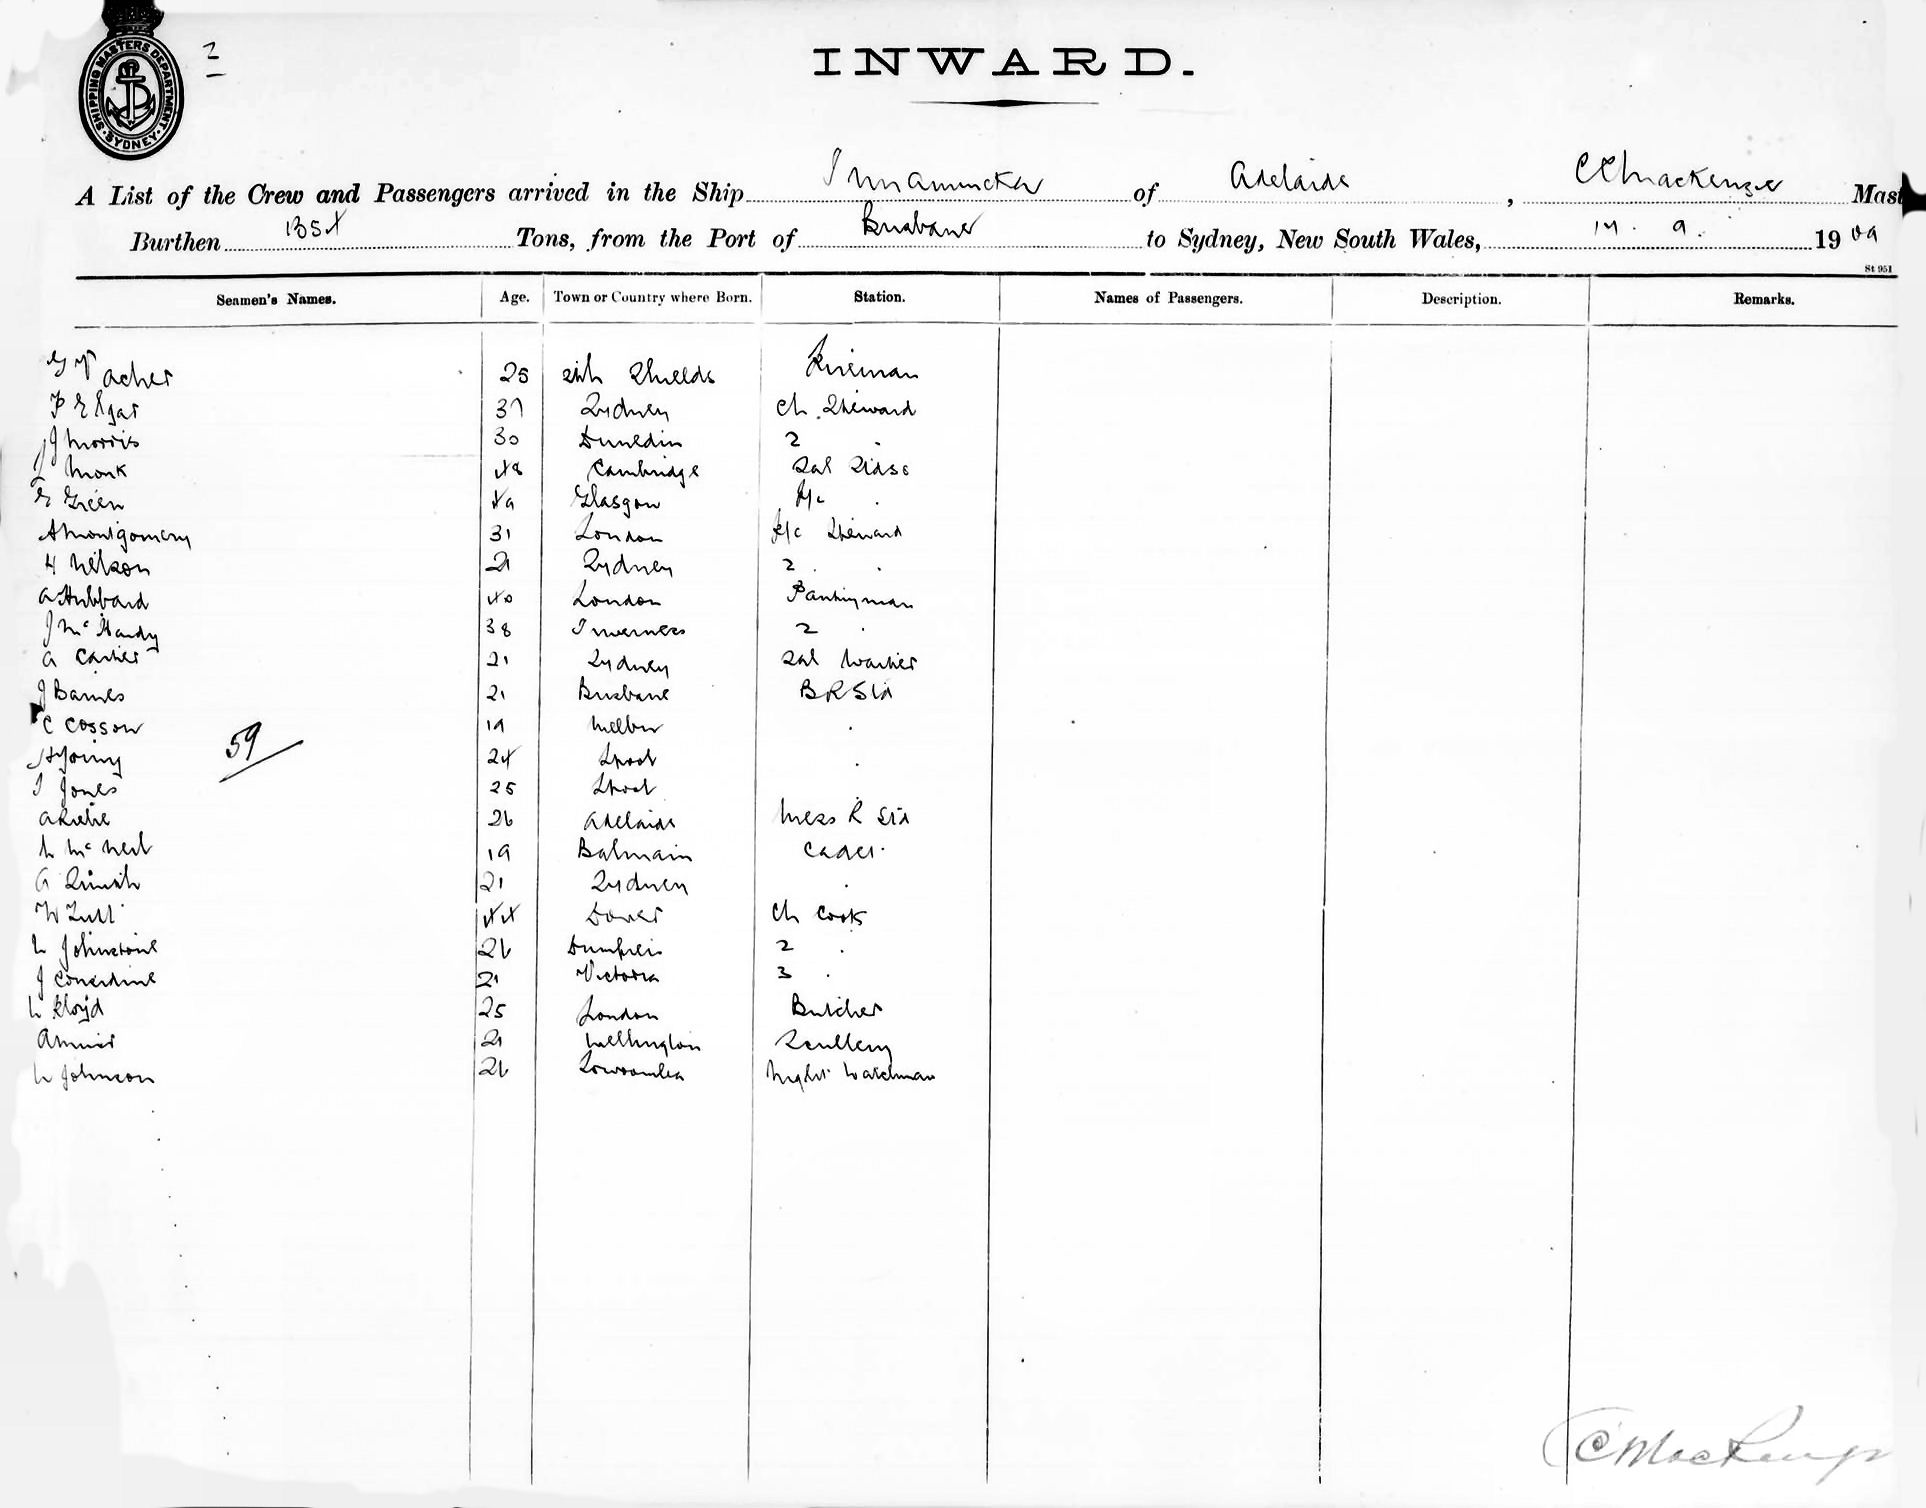 SHIPPING MASTERS DEPARTMENT
SYDNEY
2
INWARD.
A List of the Crew and Passengers arrived in the Ship Innamincka of Adelaide, CC Mackenzie Mast
Burthen Tons, from the Port of Brisbane to Sydney, New South Wales, 9. 1909
St 951
Seamen's Names. Age. Town or Country where Born. Station. Names of Passengers. Description. Remarks.
25 Sth Shields Fireman
37 Sydney Ch. Steward
J Morris 30 Dunedin 2 .
J Monk 48 Cambridge Sal Stdss
E Green 49 Glasgow F/c .
A Montgomery 31 London F/c Steward
H Nelson 21 Sydney 2 .
A Hubbard 40 London Pantryman
J McHardy 38 Inverness 2 .
A Carter 21 Sydney Sal Waiter
J Barnes 21 Brisbane BR Std
C Cosson 19 Melbn .
H Young 24 Lpool .
59
T Jones 25 Lpool
26 Adelaide Mess R Std
McNeil 19 Balmain Cadet.
A Smith 21 Sydney .
W Tutt 44 Dover Ch Cook
W Johnstone 26 Dumfreis 2 .
J Considine 21 Victoria 3 .
W Lloyd 25 London Butcher
A Muir 21 Wellington Scullery
W Johnson 26 Towoomba Night Watchman
CC MacKenzie